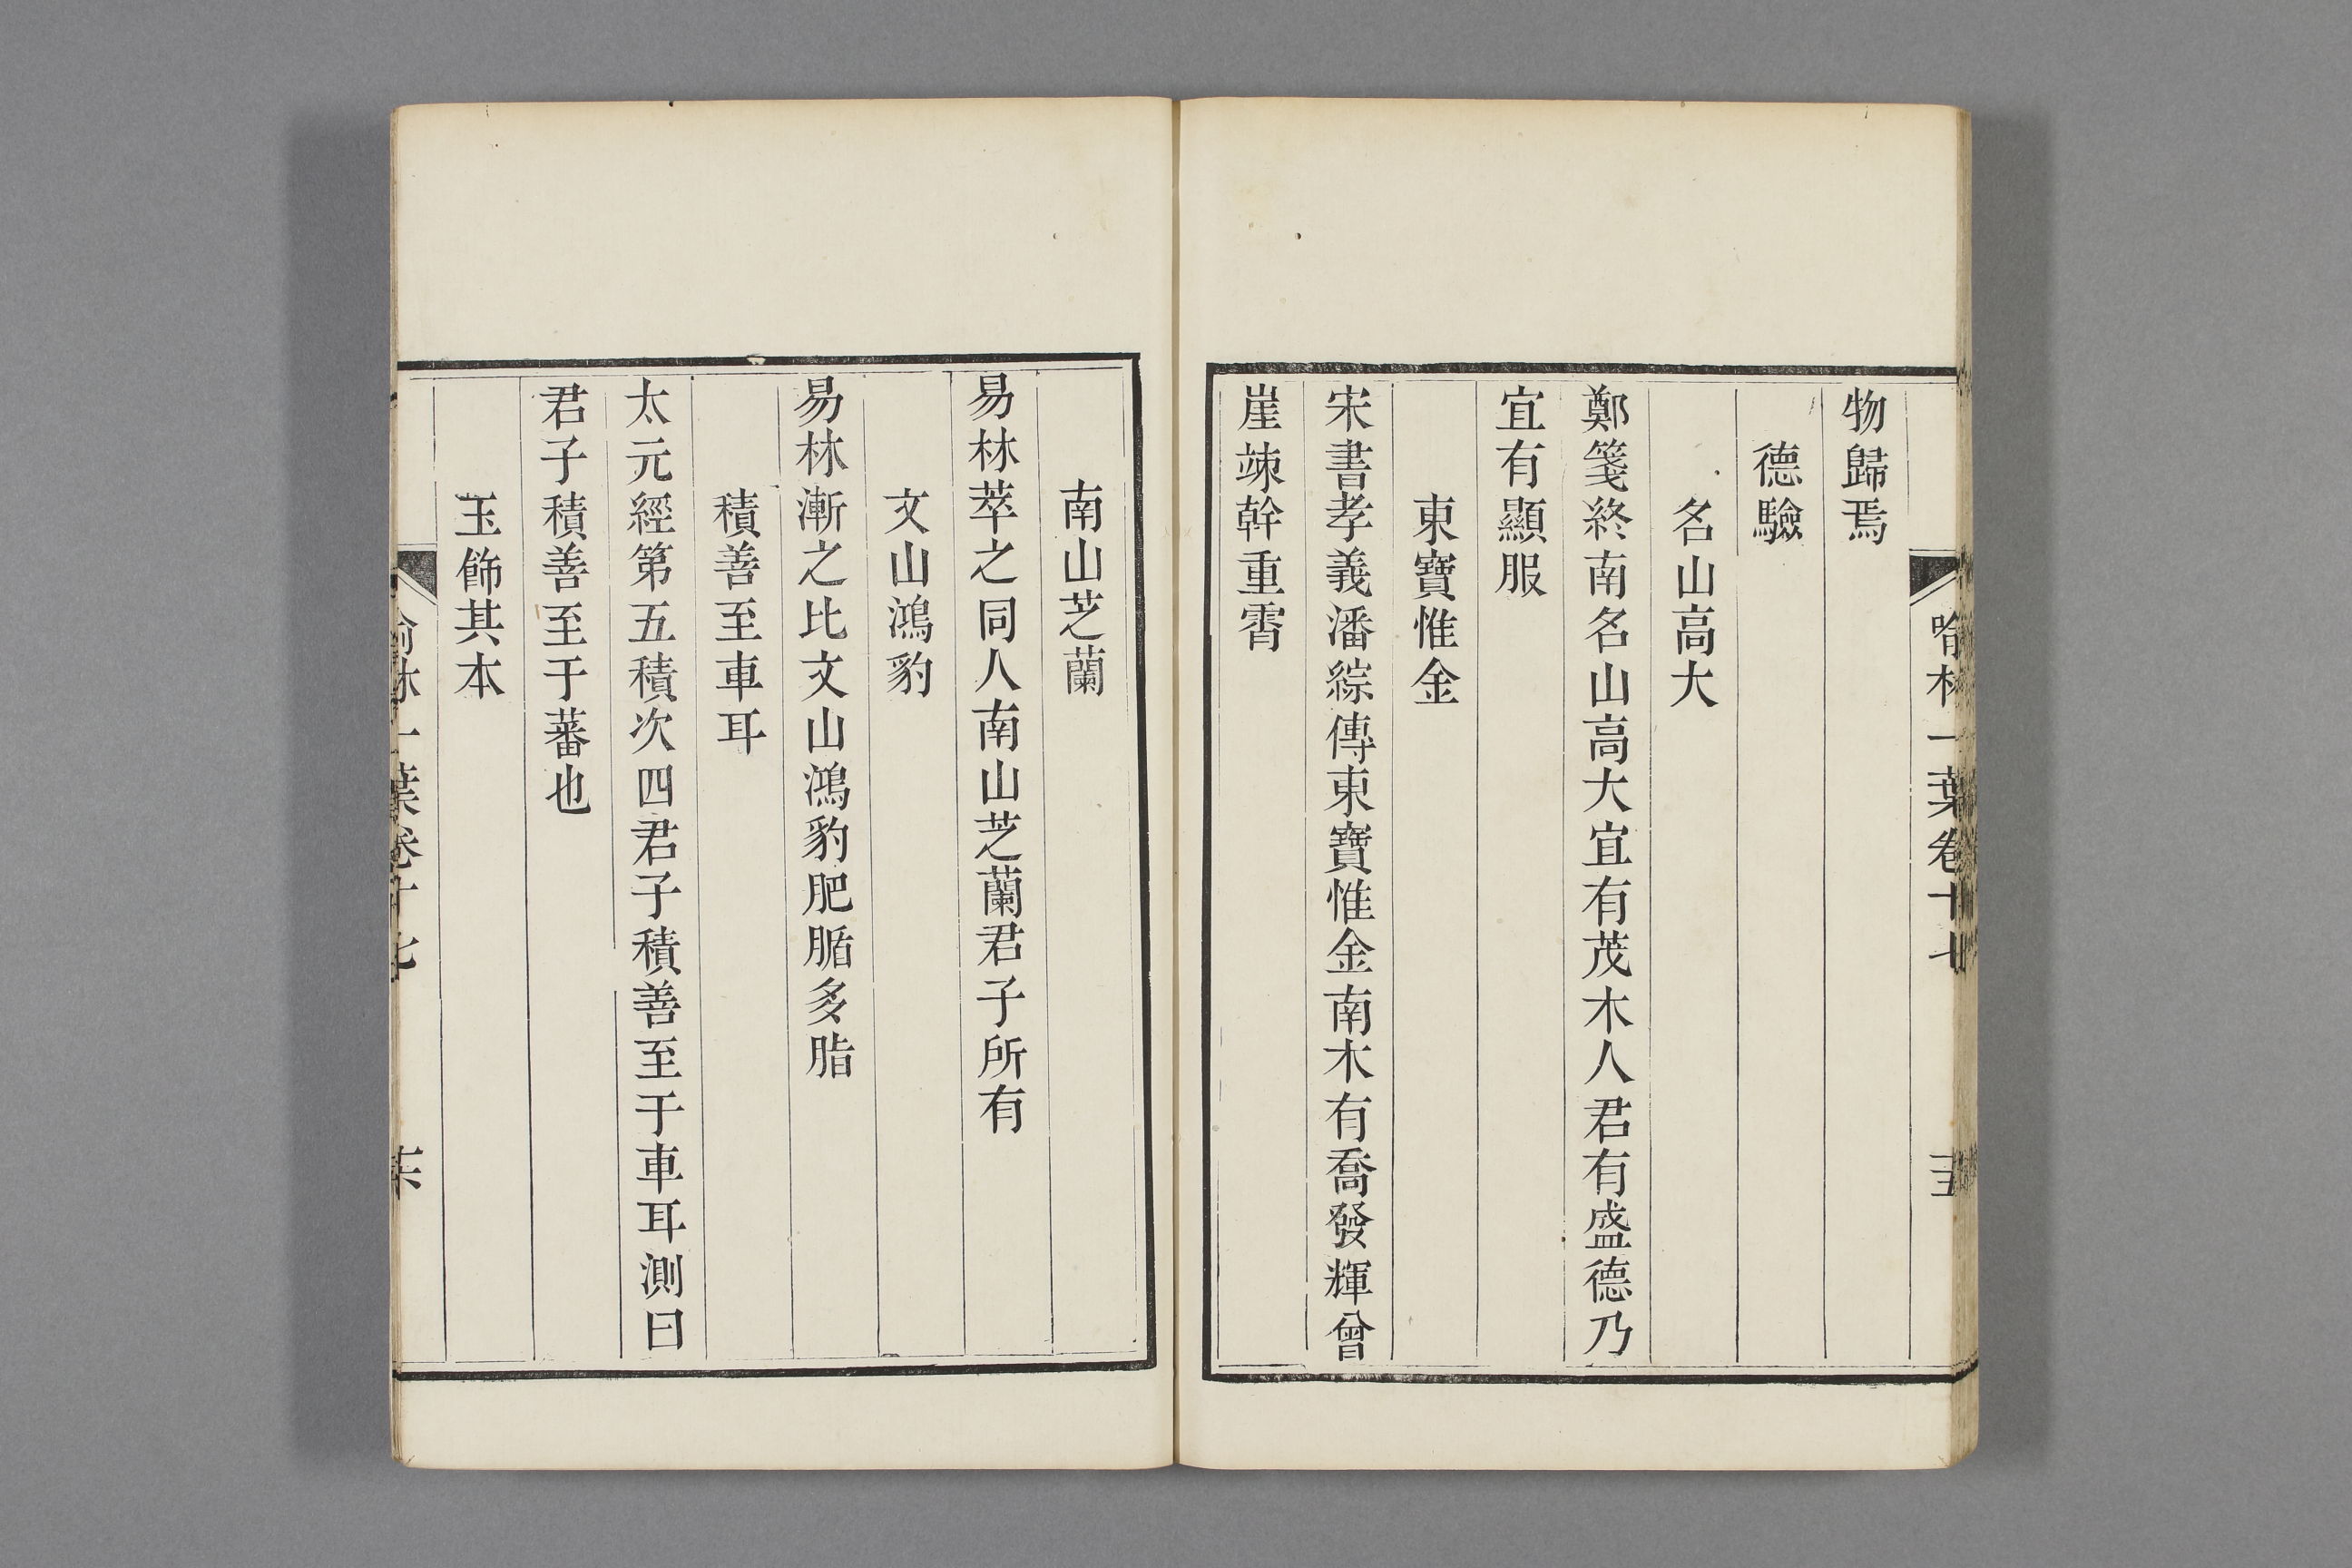 喻林一葉卷十七
物歸焉
德驗
名山高大
鄭箋終南名山高大宜有茂木人君有盛德乃
宜有顯服
東寶惟金
宋書孝義潘綜傳東寶惟金南木有喬發輝曾
崖竦幹重霄
南山芝蘭
易林萃之同人南山芝蘭君子所有
文山鴻豹
易林漸之比文山鴻豹肥腯多脂
積善至車耳
太元經第五積次四君子積善至于車耳測曰
君子積善至于蕃也
玉飾其本
喻林一葉卷十七